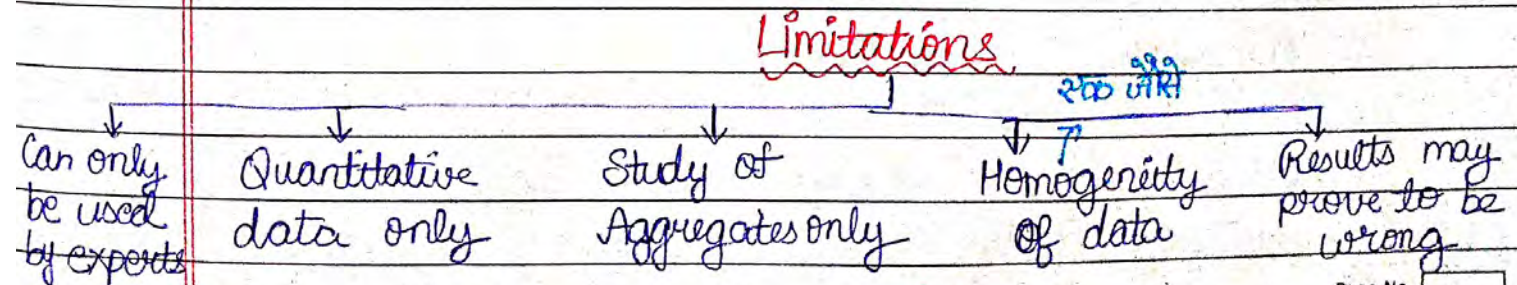 Limitations
एक जैसे
Can only
be used
by experts
Quantitative
data only
Study of
Aggregates only
Homogeneity
of data
Results may
prove to be
wrong